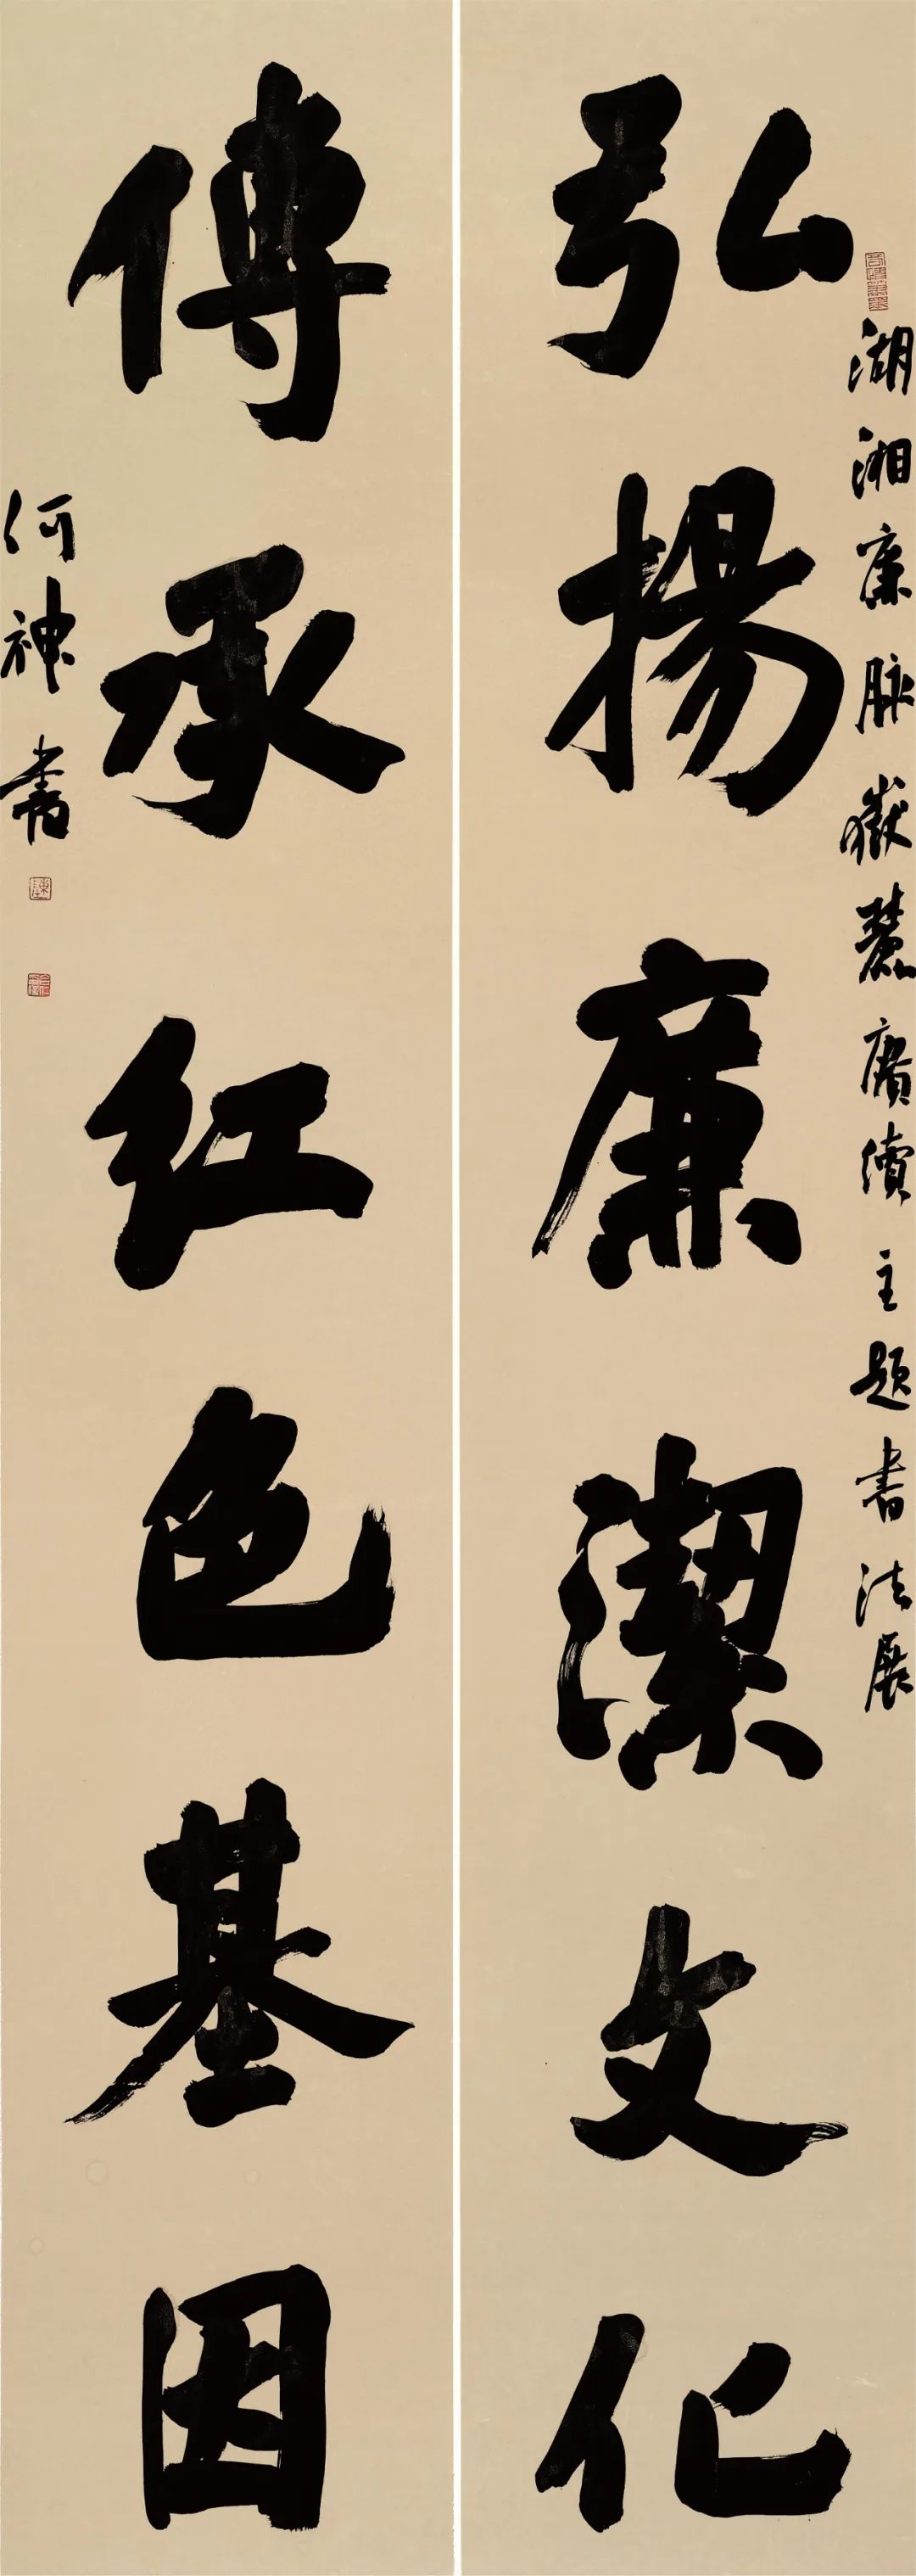 湖湘廉脉嶽麓賡續主題書法展
弘揚廉潔文化
傳承红色基因
何神書